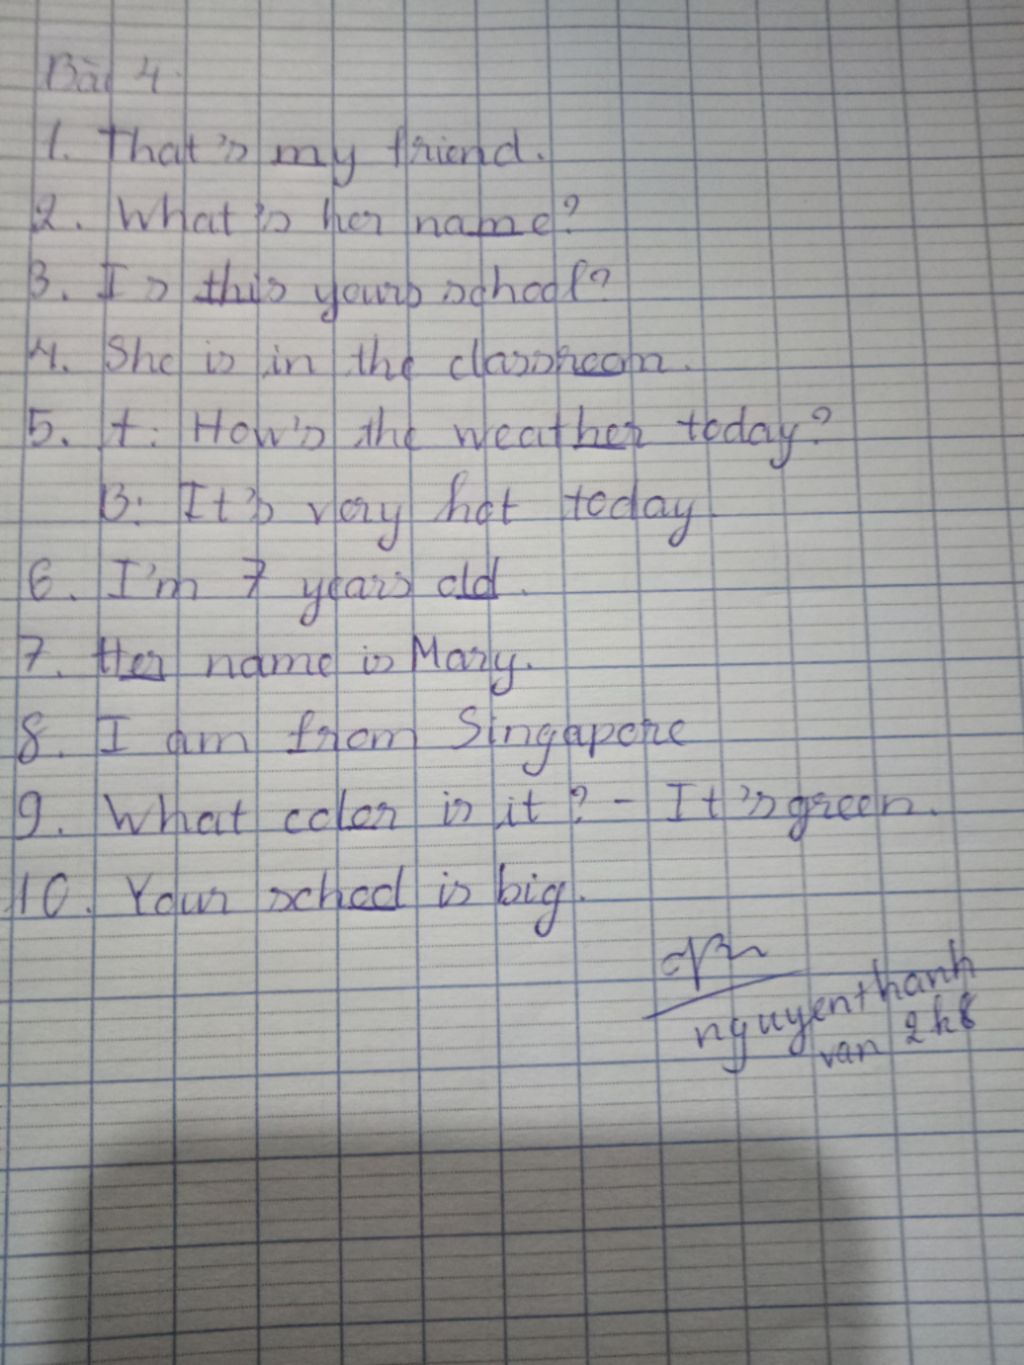 Bài 4
1. That's my friend.
2. What's her name?
3. Is this yours school?
4. She is in the classroom.
5. A: How's the weather today?
B: It's very hot today
6. I'm 7 years old.
7. Her name is Mary.
8. I am from Singapore
9. What color is it? - It's green.
10. Your school is big.
nguyenthanh
van 2k8